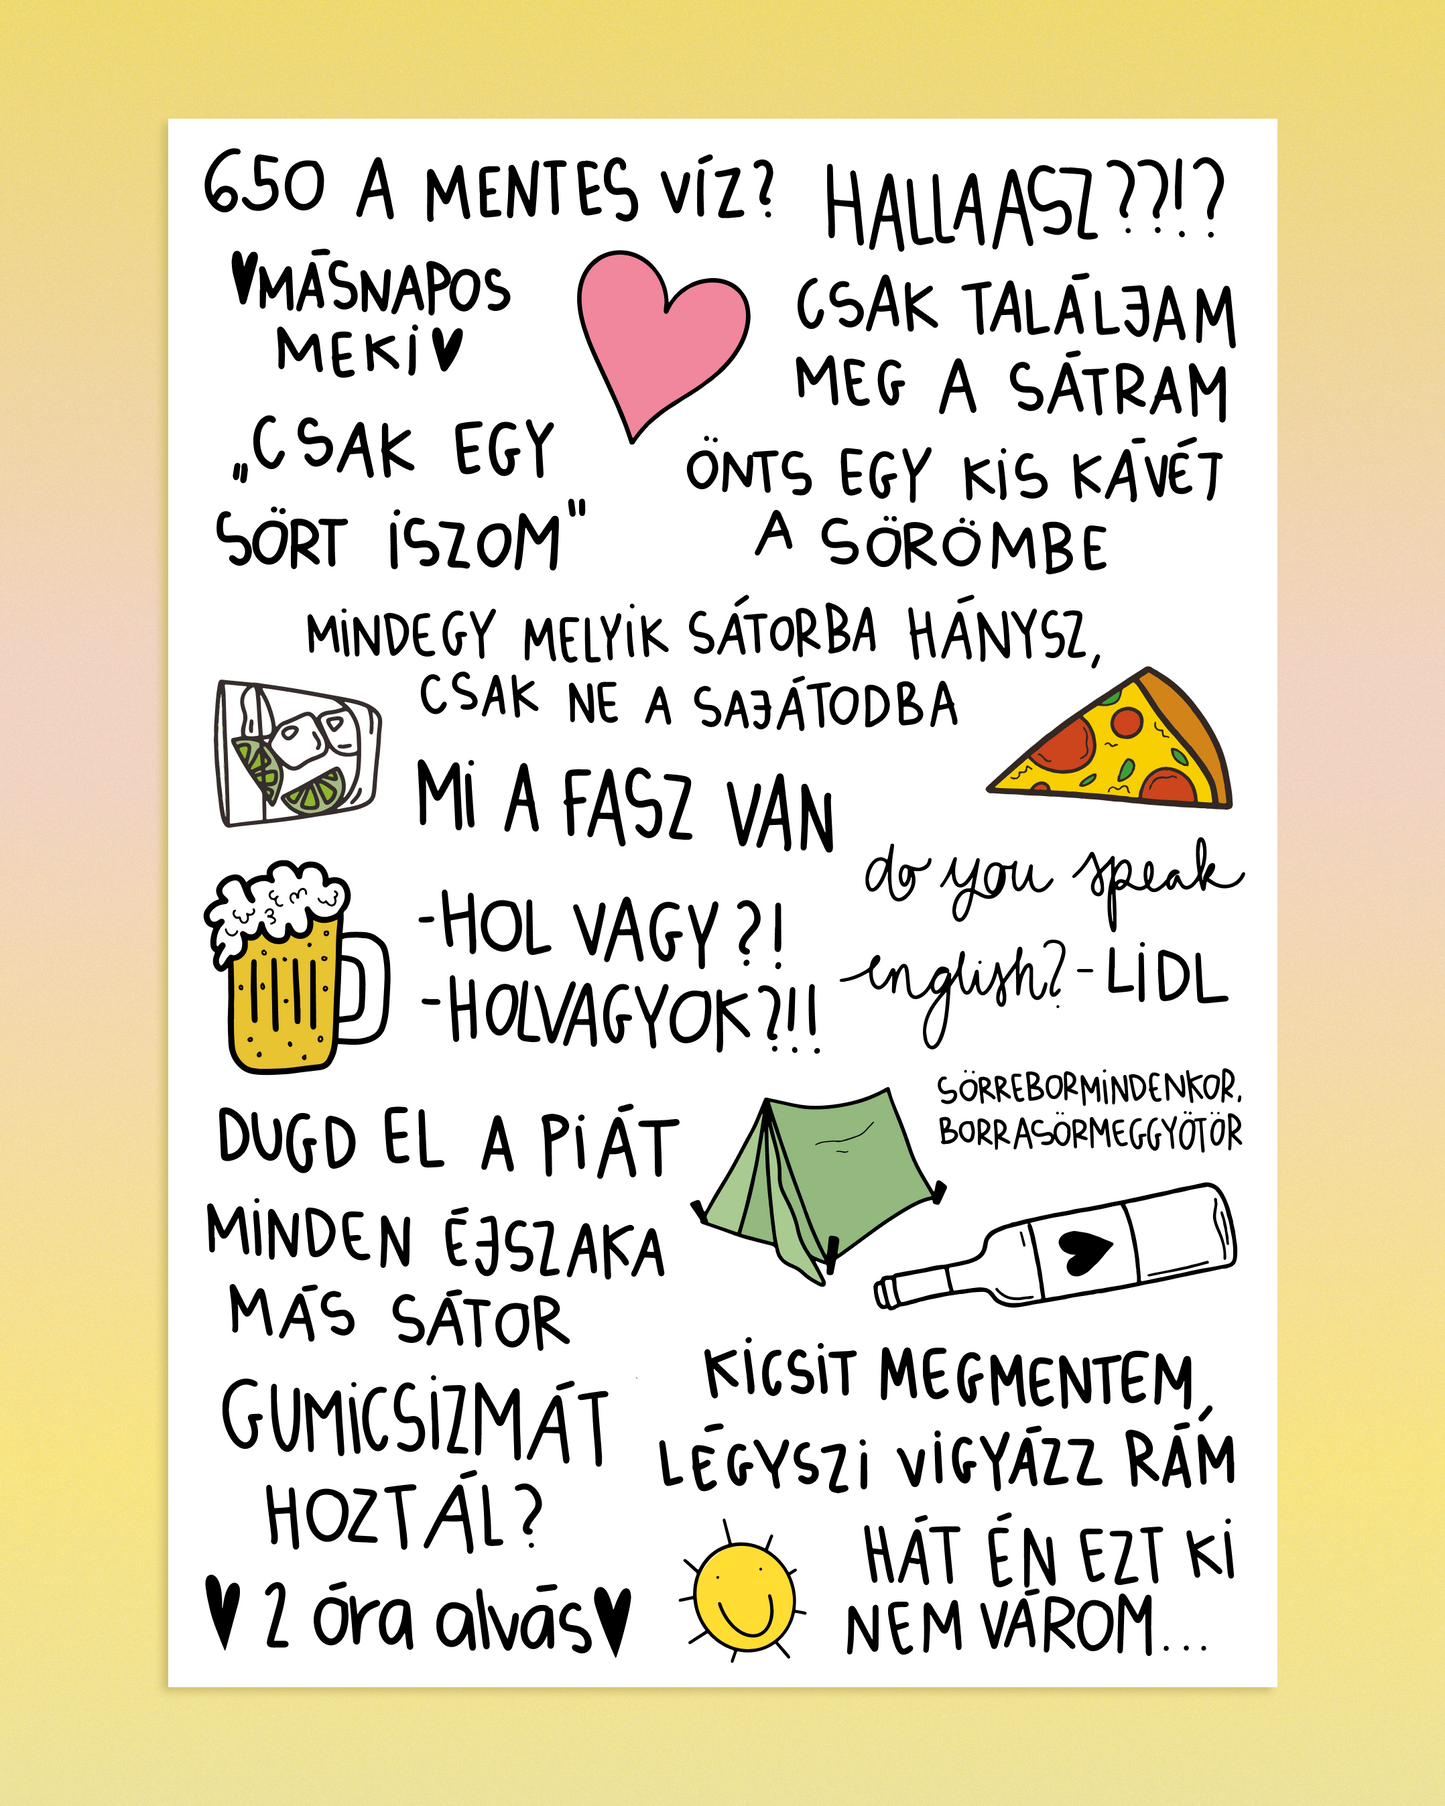 650 A MENTES VÍZ?
HALLAASZ??!?
MÁSNAPOS
MEKI
CSAK TALÁLJAM
MEG A SÁTRAM
„CSAK EGY
SÖRT ISZOM"
ÖNTS EGY KIS KÁVÉT
A SÖRÖMBE
MINDEGY MELYIK SÁTORBA HÁNYSZ,
CSAK NE A SAJÁTODBA
MI A FASZ VAN
do you speak
english? - LIDL
-HOL VAGY?!
-HOLVAGYOK?!!
SÖRREBORMINDENKOR,
BORRASÖRMEGGYÖTÖR
DUGD EL A PIÁT
MINDEN ÉJSZAKA
MÁS SÁTOR
KICSIT MEGMENTEM,
LÉGYSZI VIGYÁZZ RÁM
GUMICSIZMÁT
HOZTÁL?
HÁT ÉN EZT KI
NEM VÁROM...
2 óra alvás